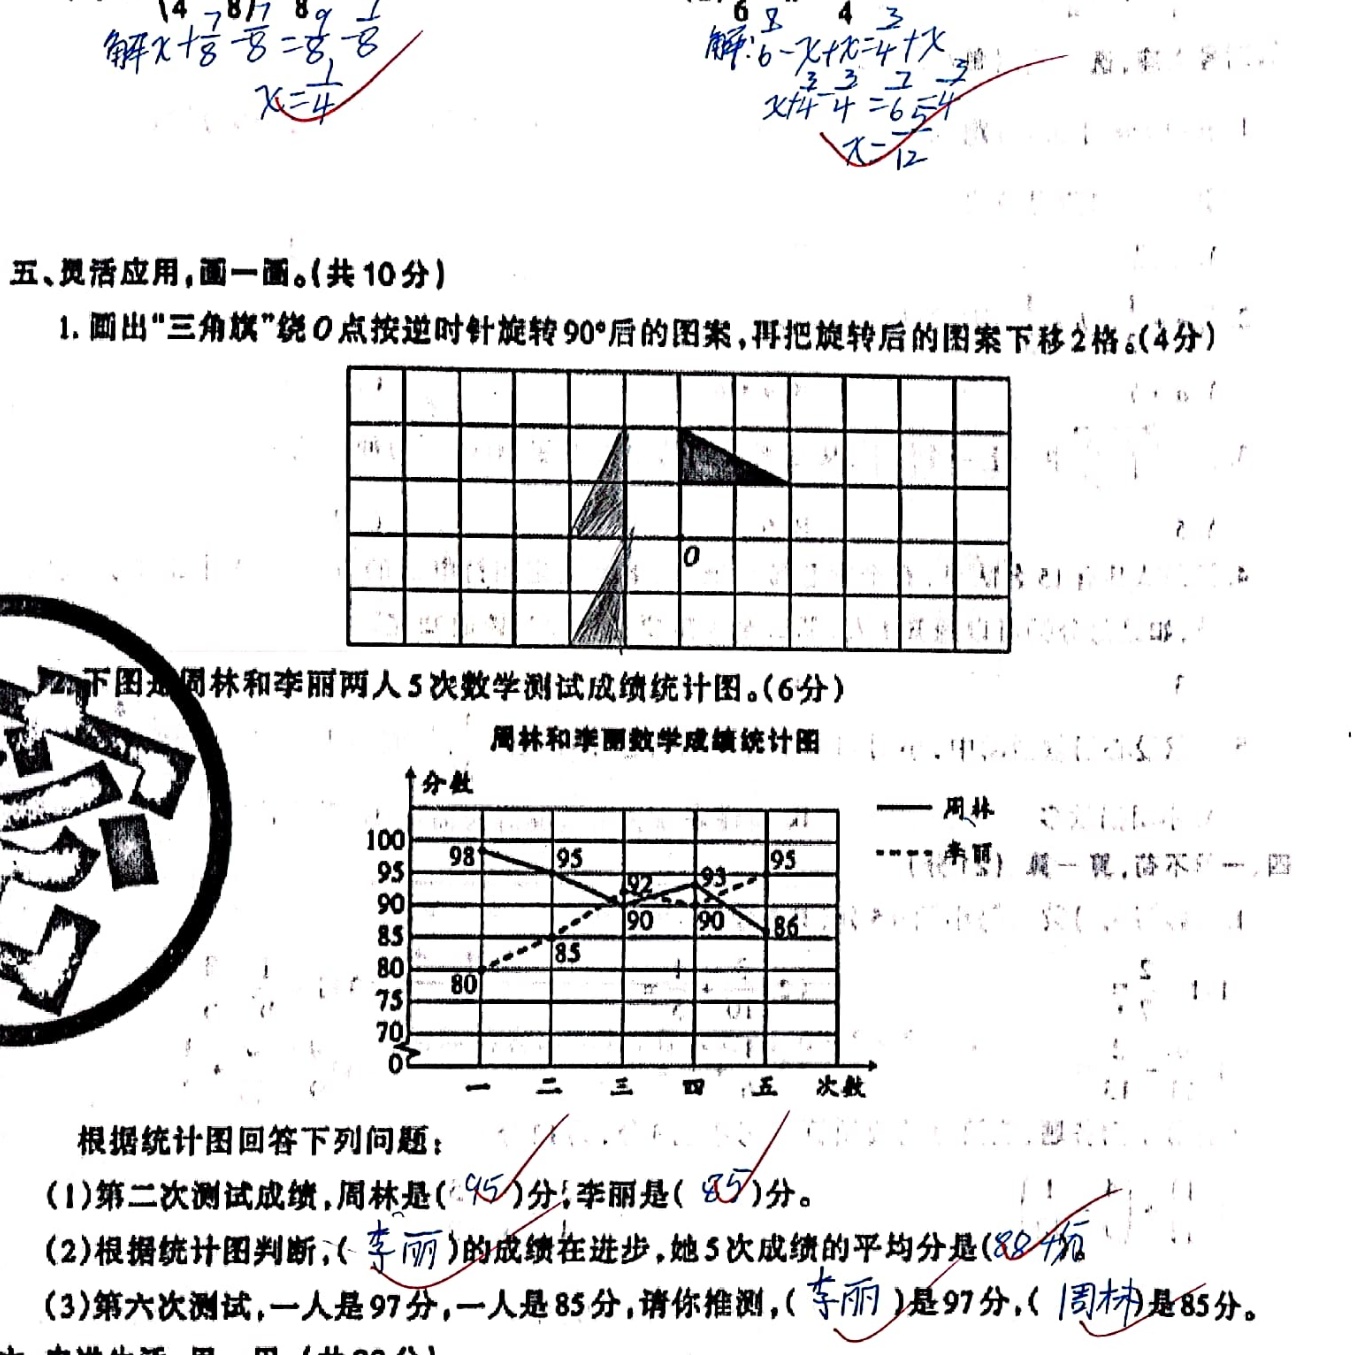 解 x+7/8-7/8=9/8-1/8
x=1/4
解:8/6-x+x=3/4+x
x+3/4-3/4=7/6-3/4
x=5/12
五、灵活应用,画一画。(共10分)
1. 画出“三角旗”绕O点按逆时针旋转90°后的图案,再把旋转后的图案下移2格。(4分)
O
2.下图是周林和李丽两人5次数学测试成绩统计图。(6分)
周林和李丽数学成绩统计图
分数
周林
李丽
100
95
90
85
80
75
70
0
98 95 92 93 95
90 90 86
85
80
一 二 三 四 五 次数
根据统计图回答下列问题:
(1)第二次测试成绩,周林是(95)分,李丽是(85)分。
(2)根据统计图判断,(李丽)的成绩在进步,她5次成绩的平均分是(88.4分)。
(3)第六次测试,一人是97分,一人是85分,请你推测,(李丽)是97分,(周林)是85分。